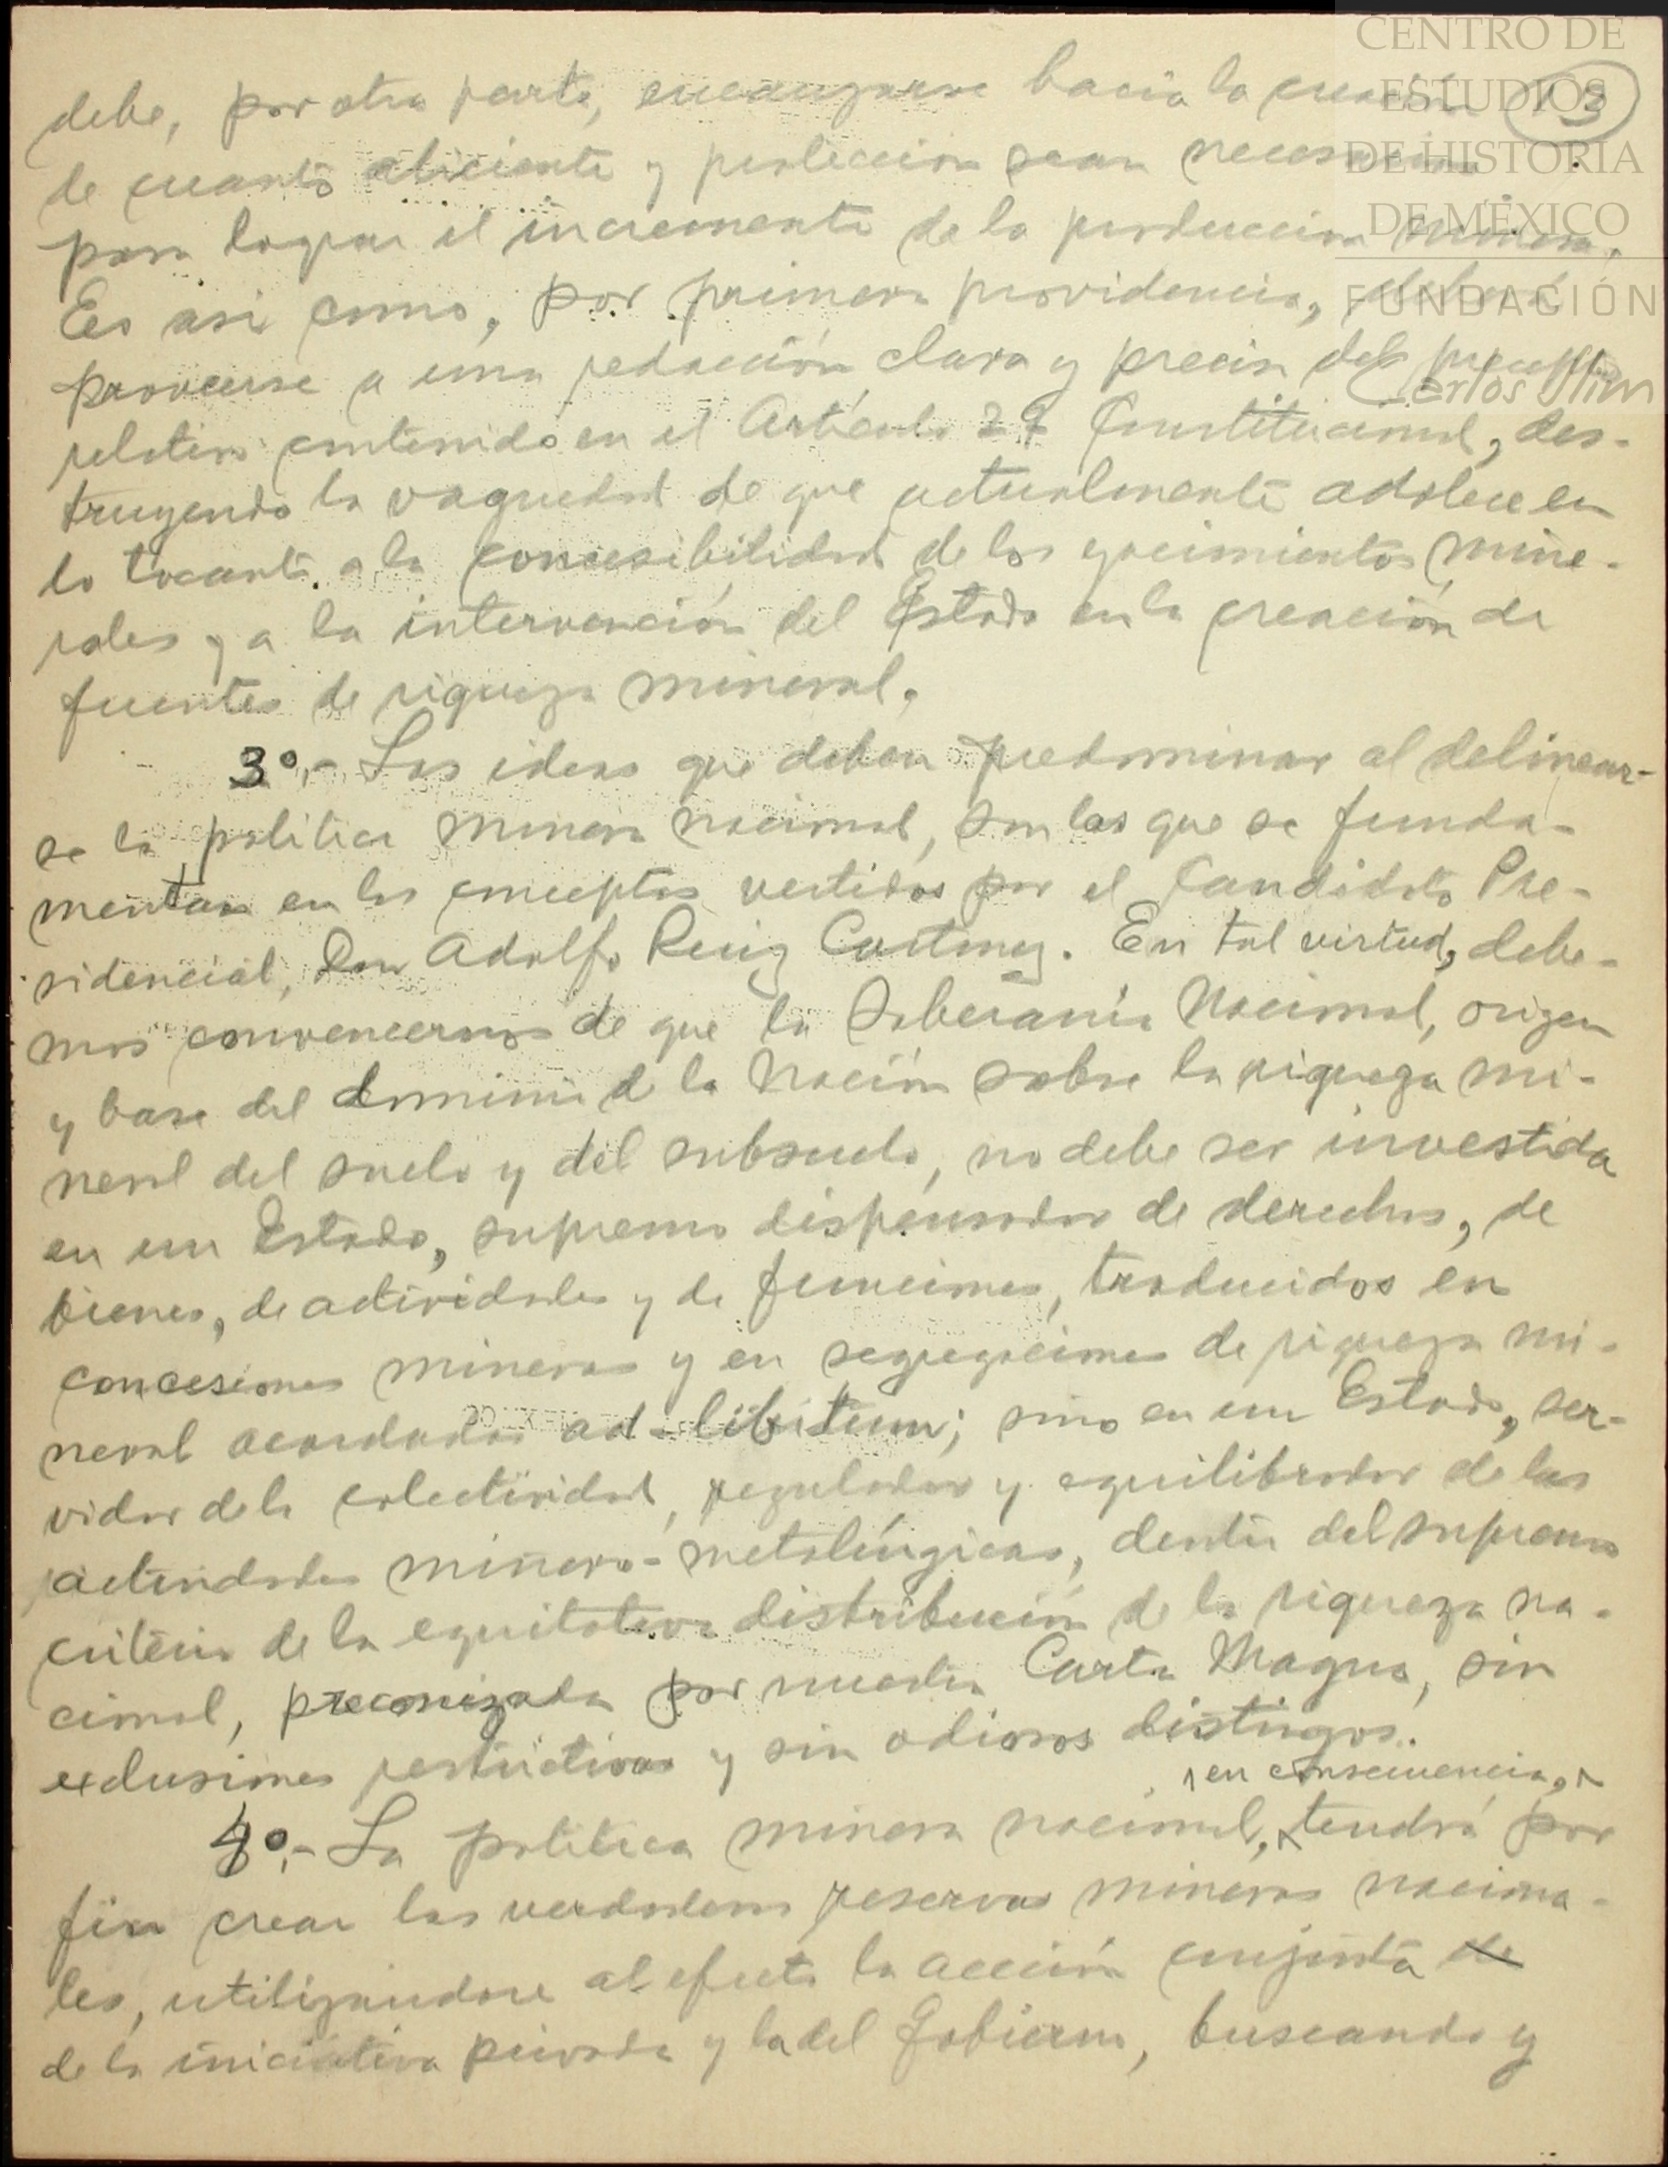 CENTRO DE
ESTUDIOS
DE HISTORIA
DE MÉXICO
FUNDACIÓN
Carlos Slim
3
debe, por otra parte, encauzarse hacia la creación
de cuanto aliciente y protección sean necesarios
para lograr el incremento de la producción minera.
Es así como, por primera providencia, deberá
proveerse a una redacción clara y precisa del precepto
relativo contenido en el Artículo 27 Constitucional, des-
truyendo la vaguedad de que actualmente adolece en
lo tocante a la concesibilidad de los yacimientos mine-
rales y a la intervención del Estado en la creación de
fuentes de riqueza mineral.
3º.- Las ideas que deben predominar al delinear-
se la política minera nacional, son las que se funda-
mentan en los conceptos vertidos por el Candidato Pre-
sidencial, Don Adolfo Ruiz Cortinez. En tal virtud, debe-
mos convencernos de que la Soberanía Nacional, origen
y base del dominio de la Nación sobre la riqueza mi-
neral del suelo y del subsuelo, no debe ser investida
en un Estado, supremo dispensador de derechos, de
bienes, de actividades y de funciones, traducidos en
concesiones mineras y en segregaciones de riqueza mi-
neral acordadas ad-libitum; sino en un Estado, ser-
vidor de la colectividad, regulador y equilibrador de las
actividades minero-metalúrgicas, dentro del supremo
criterio de la equitativa distribución de la riqueza na-
cional, preconizada por nuestra Carta Magna, sin
exclusiones restrictivas y sin odiosos distingos.
en consecuencia,
4º.- La política minera nacional, tendrá por
fin crear las verdaderas reservas mineras naciona-
les, utilizándose al efecto la acción conjunta de
de la iniciativa privada y la del Gobierno, buscando y